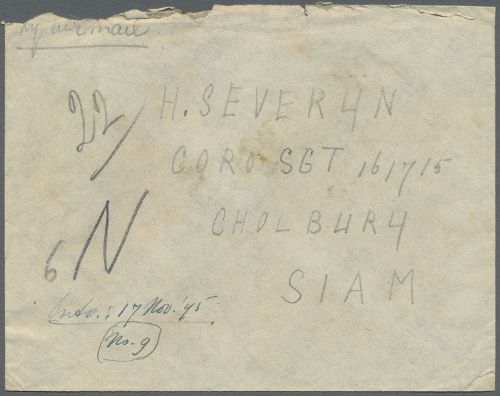 By air mail
22/
H. SEVERYN
CORO SGT 161715
CHOLBURY
SIAM
6 N
Ontv.: 17 Nov. '45
No. 9